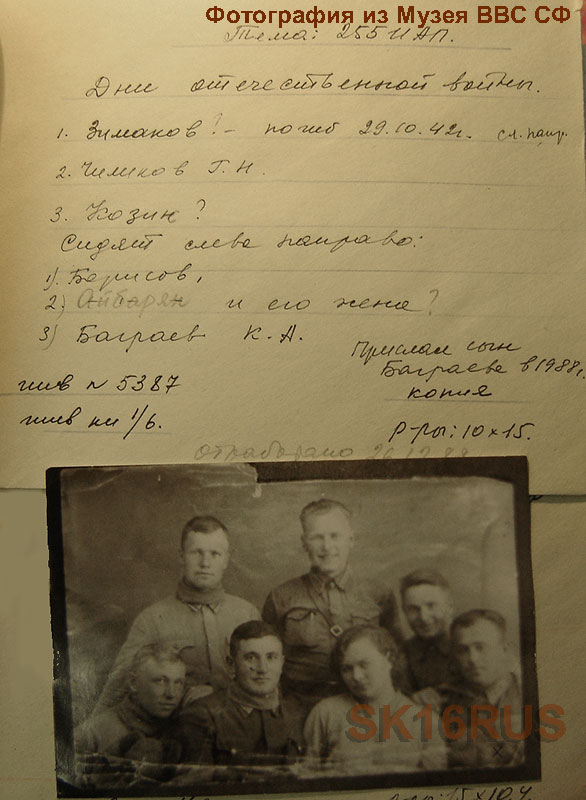 Фотография из Музея ВВС СФ
Тема: 255 ИАП.
Дни отечественной войны.
1. Зимаков? - погиб 29.10.42г. сл. напр.
2. Чиликов Г.Н.
3. Козин?
Сидят слева направо:
1) Борисов,
2) Айбарян и его жена?
3) Баграев К.А.
Прислал сын
Баграева в 1988г.
копия
инв № 5387
инв кн 1/6.
Р-ры: 10х15.
отработано
SK16RUS